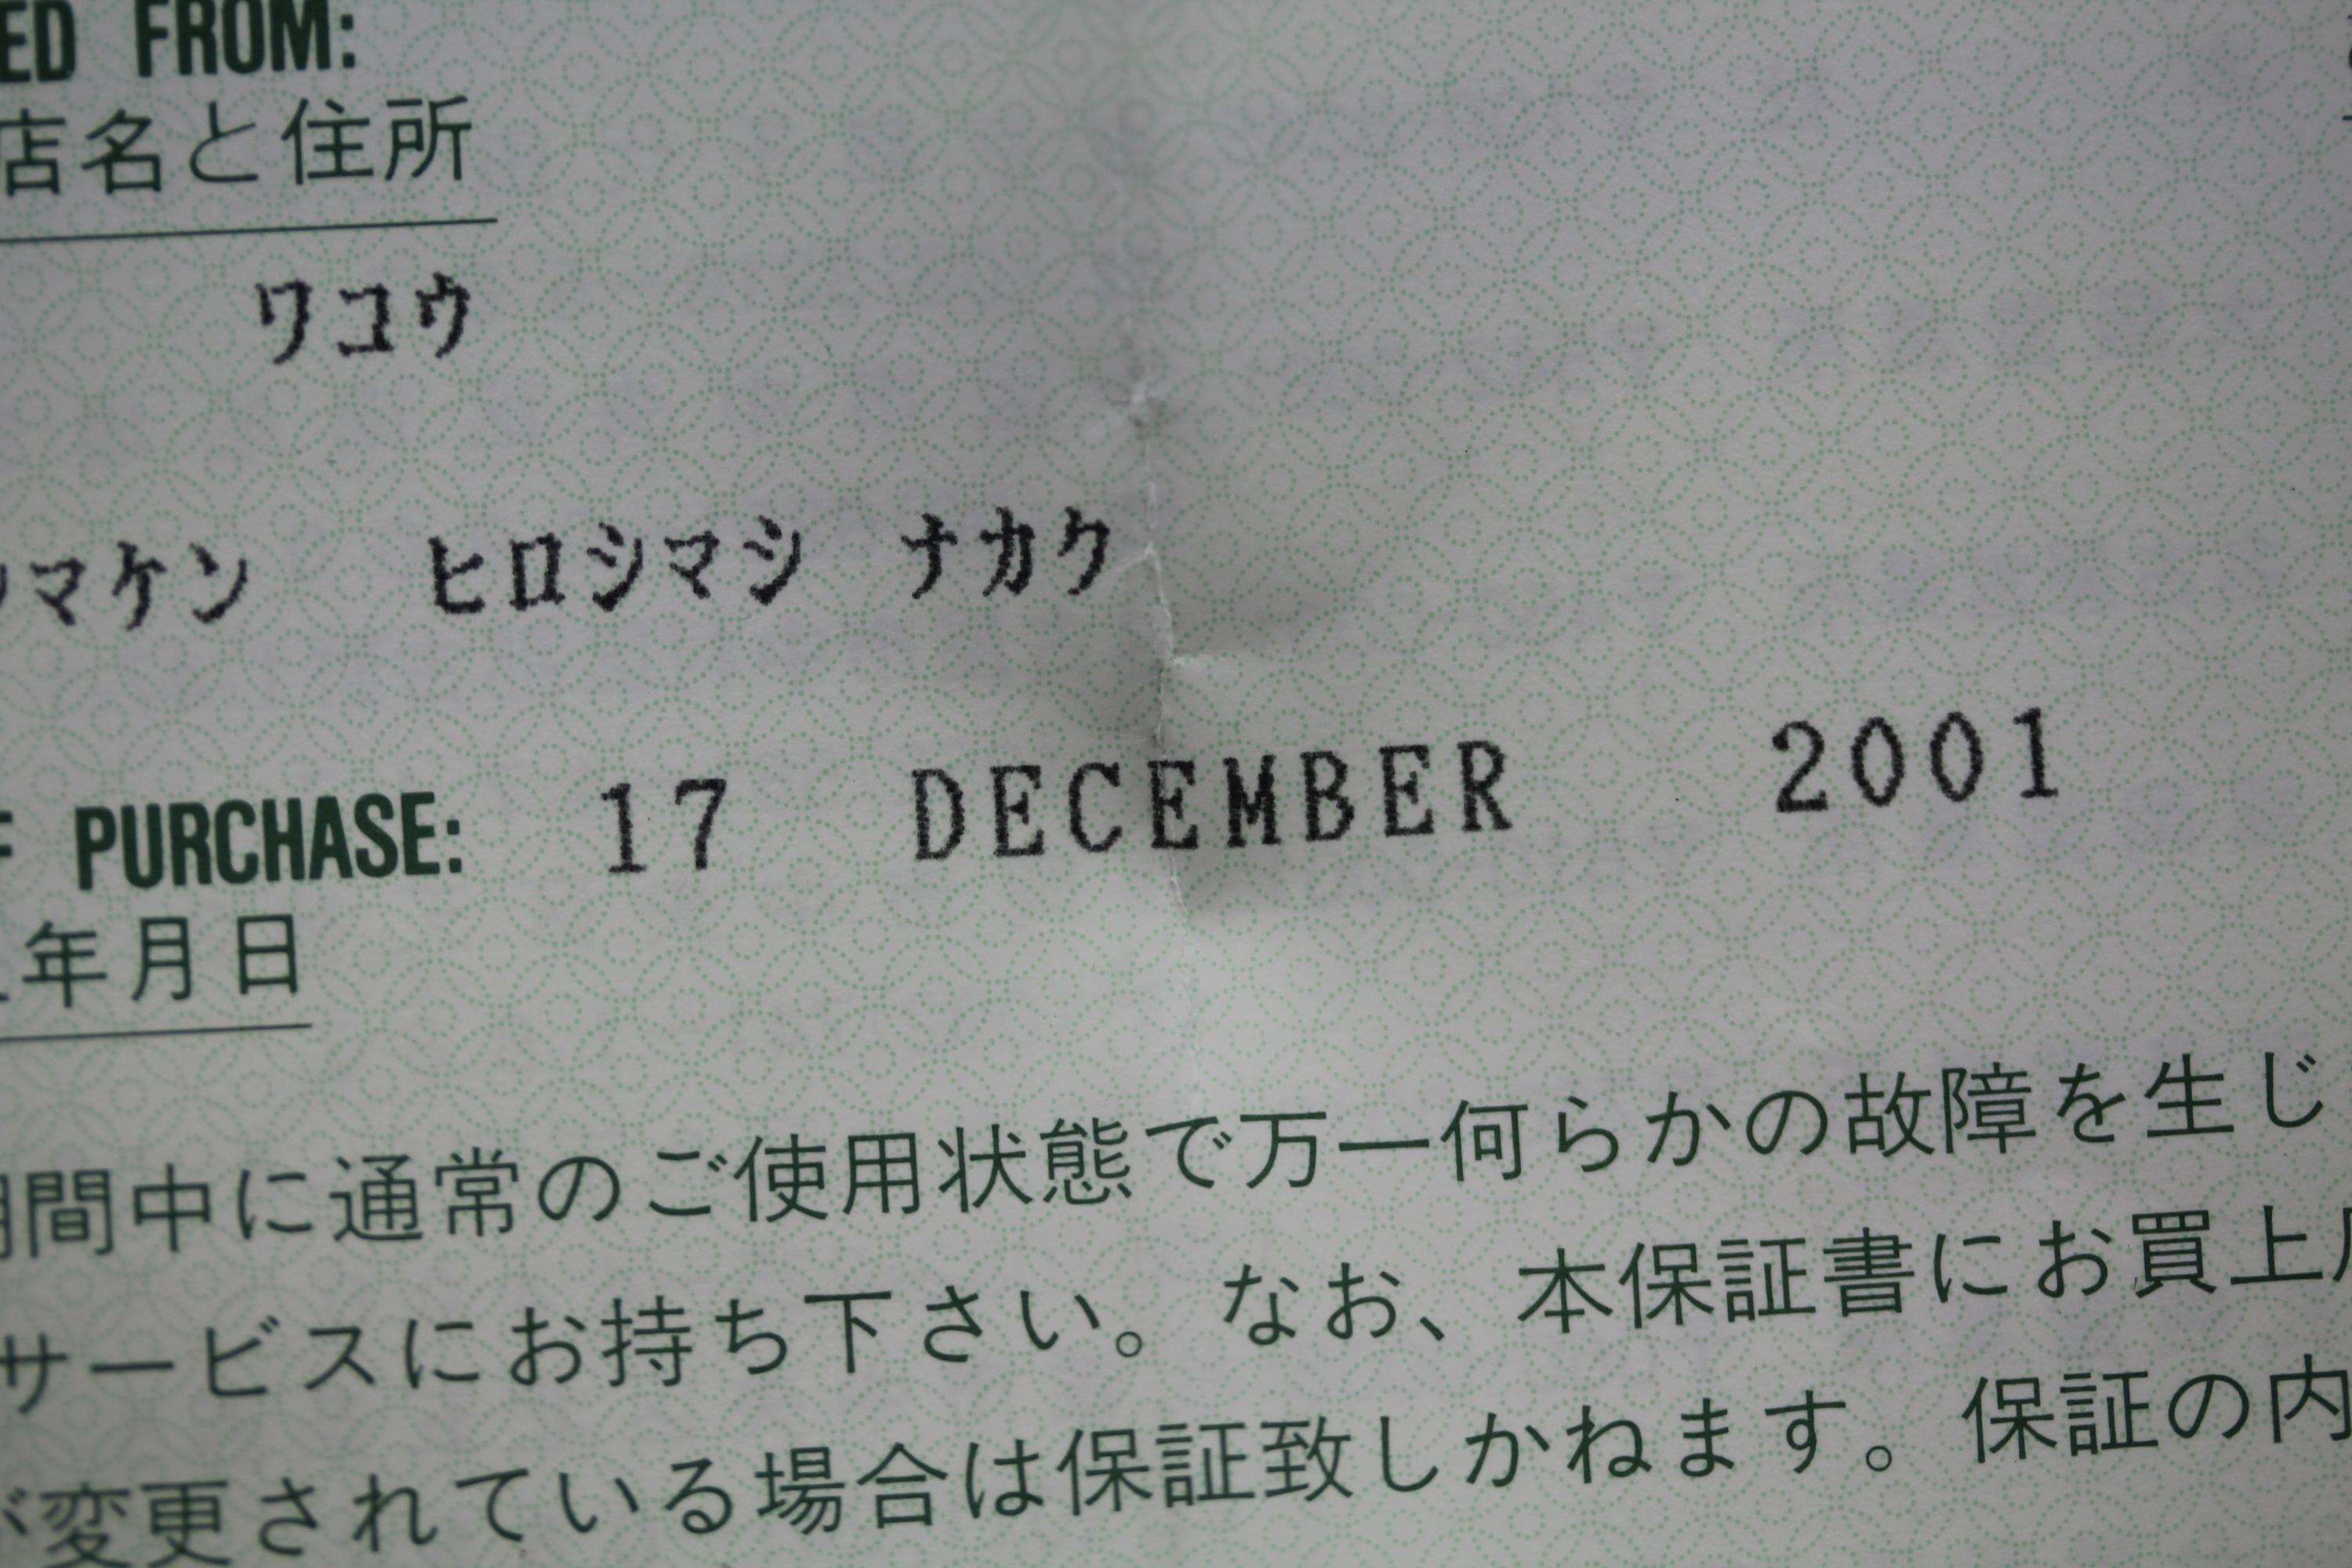 ED FROM:
店名と住所
ワコウ
マケン ヒロシマシ ナカク
F PURCHASE: 17 DECEMBER 2001
年月日
間中に通常のご使用状態で万一何らかの故障を生じ
サービスにお持ち下さい。なお、本保証書にお買上
が変更されている場合は保証致しかねます。保証の内